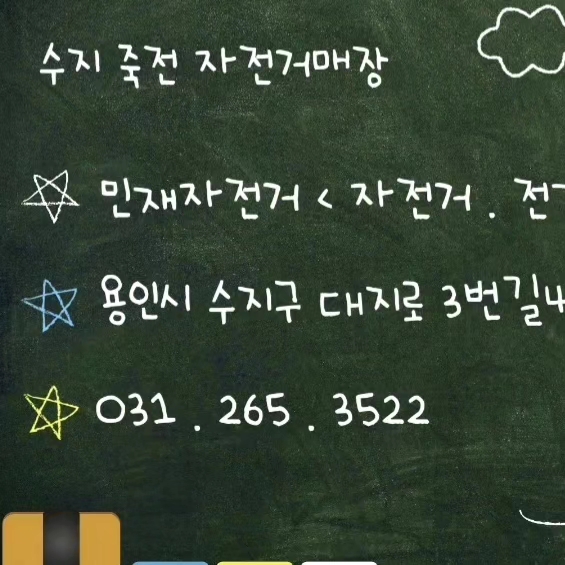 수지 죽전 자전거매장
민재자전거 < 자전거 . 전
용인시 수지구 대지로 3번길4
031 . 265 . 3522